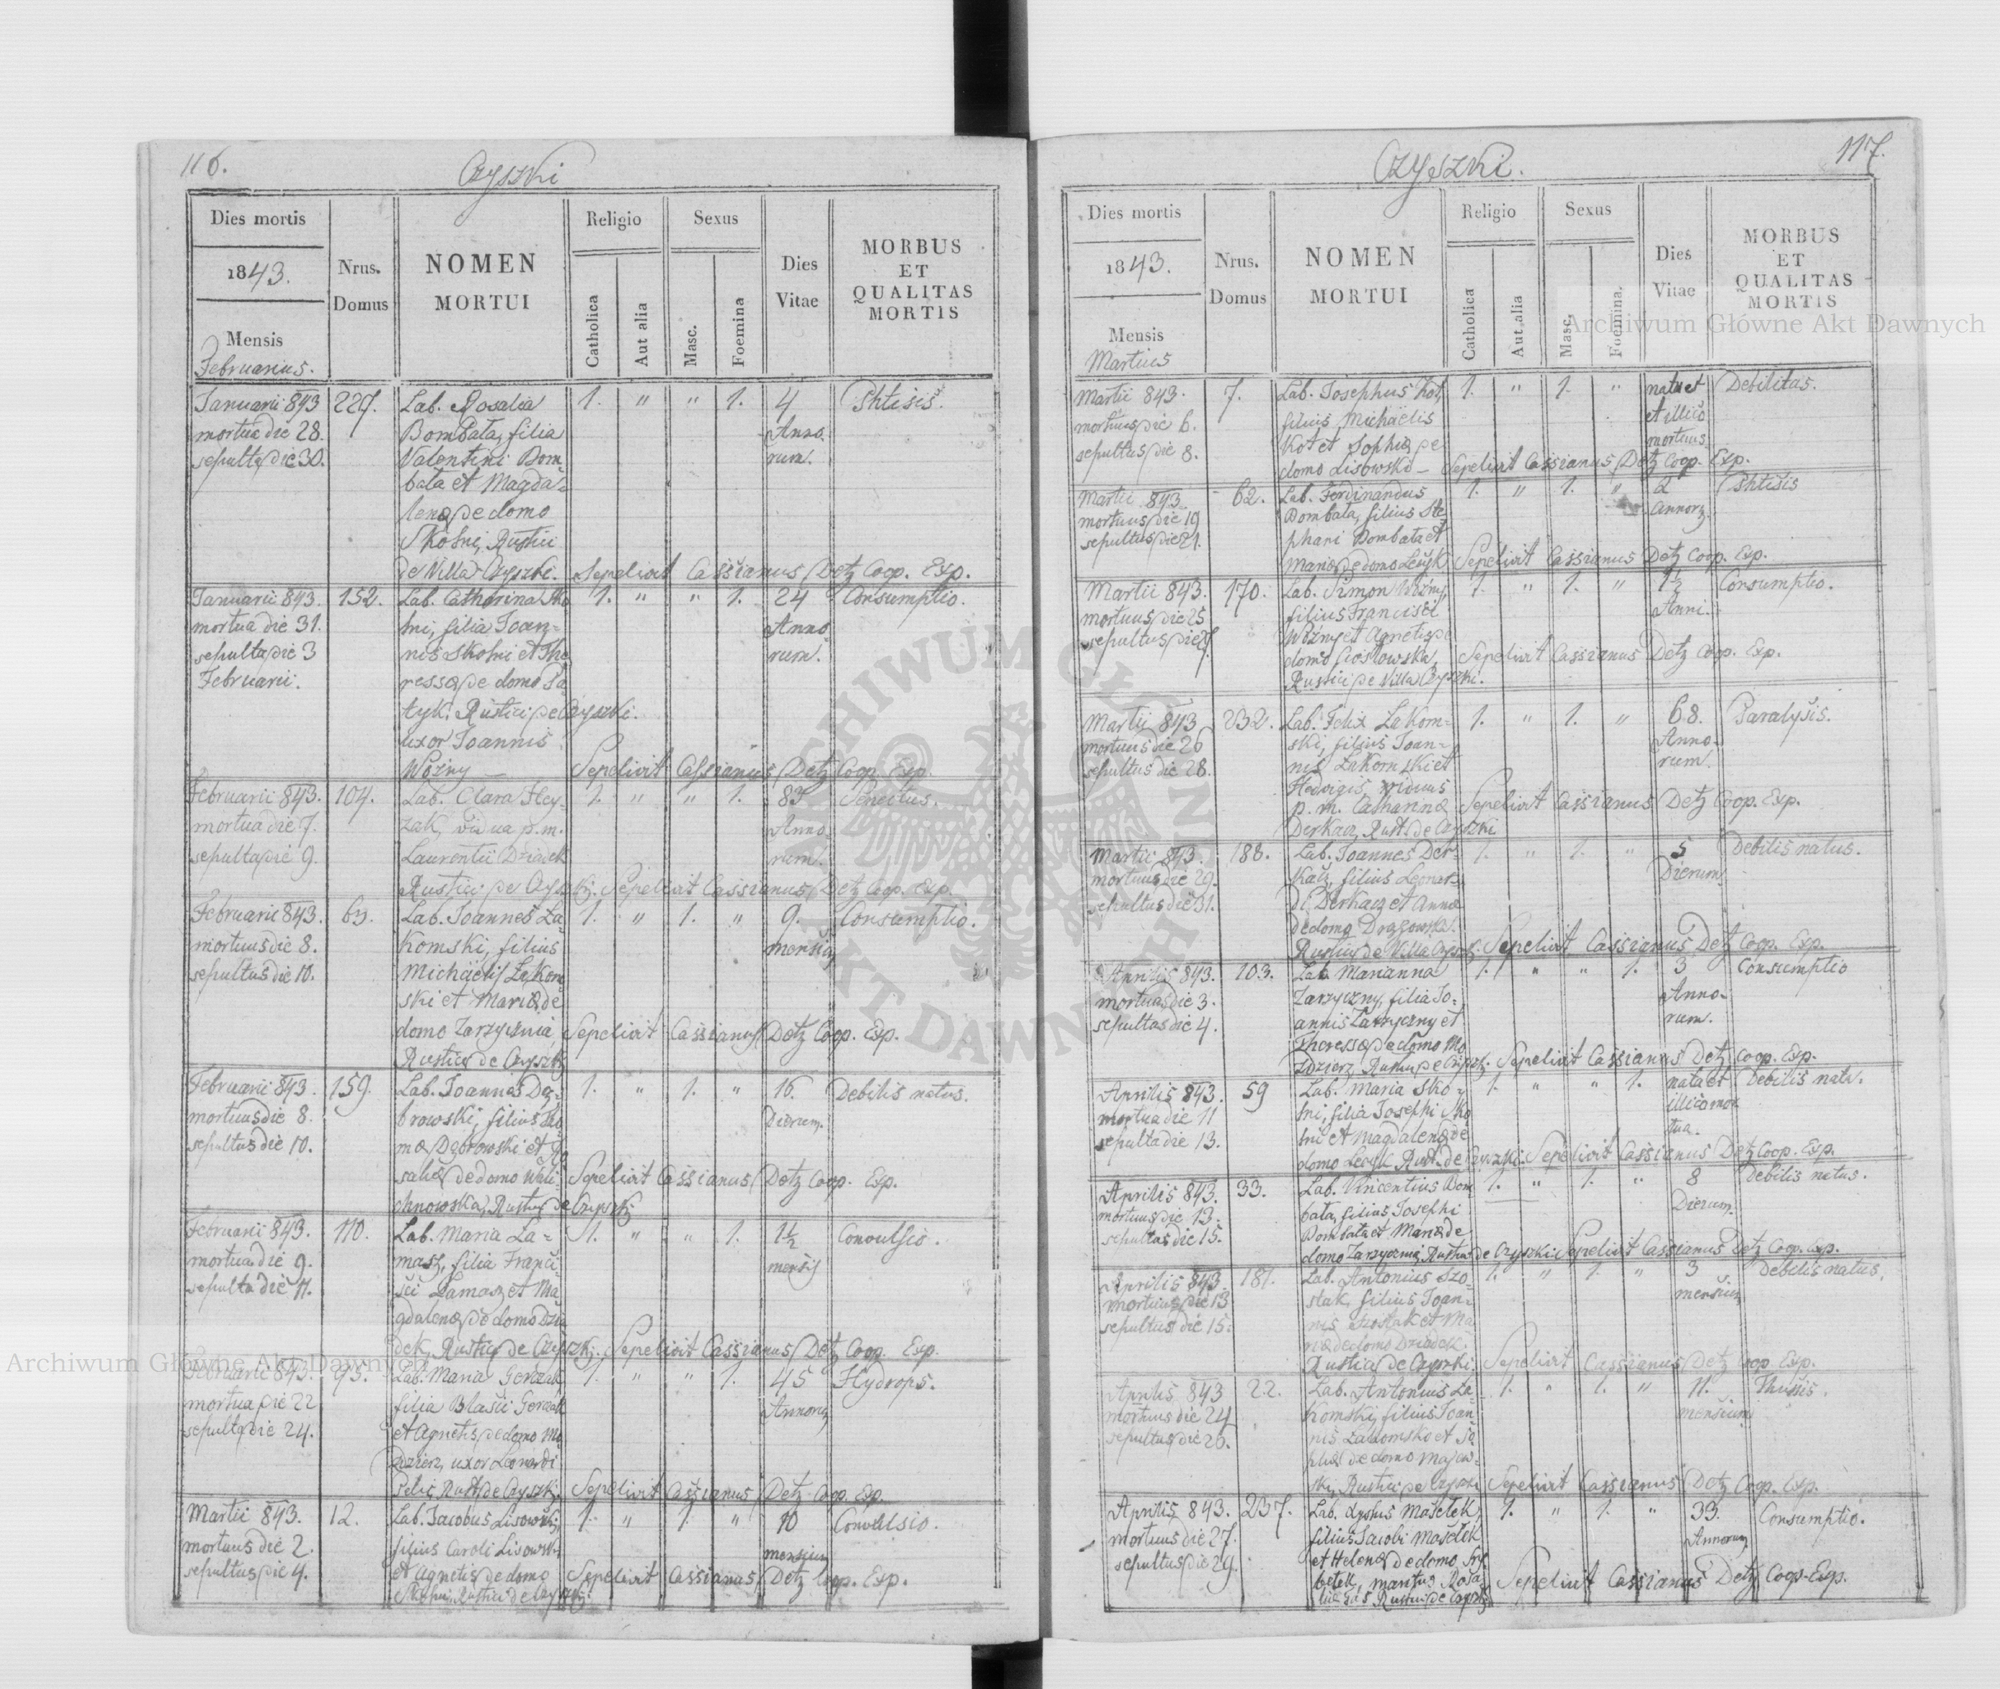 116.
Czyszki
Dies mortis
1843.
Mensis
Februarius.
Nrus.
Domus
NOMEN
MORTUI
Religio
Catholica
Aut alia
Sexus
Masc.
Foemina
Dies
Vitae
MORBUS
ET
QUALITAS
MORTIS
Januarii 843
mortua die 28.
sepulta die 30.
227.
Lab. Rosalia
Bombata, filia
Valentini Bom-
bata et Magda-
lena de domo
Skolni, Rustici
de Villa Czyszki.
1. " " 1.
4
Anno-
rum.
Phtisis.
Sepelivit Cassianus Detz Coop. Exp.
Januarii 843.
mortua die 31.
sepulta die 3
Februarii.
152.
Lab. Catharina Sko
lni, filia Joan-
nis Skolni et The
ressa de domo
Rustici de Czyszki.
uxor Joannis
Woźny
1. " " 1.
24
Anno-
rum.
Consumptio.
Sepelivit Cassianus Detz Coop. Exp.
Februarii 843.
mortua die 7.
sepulta die 9.
104.
Lab. Clara
vidua p.m.
Laurentii Dziadek
Rustici de Czyszki.
1. " " 1.
83
Anno-
rum.
Senectus.
Sepelivit Cassianus Detz Coop. Exp.
Februarii 843.
mortuus die 8.
sepultus die 10.
Lab. Joannes La-
komski, filius
Michaelis Lakom-
ski et Maria de
domo Zarzycznia
Rustici de Czyszki
1. " 1. "
9.
mensium
Consumptio.
Sepelivit Cassianus Detz Coop. Exp.
Februarii 843.
mortuus die 8.
sepultus die 10.
159.
Lab. Joannes Dąb-
browski, filius Tho
ma Dąbrowski et Ro
salia de domo
Rustici de Czyszki
1. " 1. "
16.
Dierum.
Debilis natus.
Sepelivit Cassianus Detz Coop. Exp.
Februarii 843.
mortua die 9.
sepulta die 11.
110.
Lab. Maria La-
masz, filia Franci-
sci Lamasz et Ma
gdalena de domo Dzia
dek, Rustici de Czyszki.
1. " " 1.
1½
mensis
Convulsio.
Sepelivit Cassianus Detz Coop. Exp.
Februarii 843.
mortua die 22
sepulta die 24.
93.
Lab. Maria Gorczak
filia Blasii Gorczak
et Agnetis de domo Mo
dzierz, uxor Leonardi
Rust. de Czyszki
1. " " 1.
45
Annorum
Hydrops.
Sepelivit Cassianus Detz Coop. Exp.
Martii 843.
mortuus die 2.
sepultus die 4.
12.
Lab. Jacobus Lisowski,
filius Caroli Lisowski
et Agnetis de domo
Skolni, Rustici de Czyszki.
1. " 1. "
10
mensium
Convulsio.
Sepelivit Cassianus Detz Coop. Exp.
117.
Czyszki.
Dies mortis
1843.
Mensis
Martius
Nrus.
Domus
NOMEN
MORTUI
Religio
Catholica
Aut alia
Sexus
Masc.
Foemina.
Dies
Vitae
MORBUS
ET
QUALITAS
MORTIS
Martii 843.
mortuus die 6.
sepultus die 8.
7.
Lab. Josephus Kot,
filius Michaelis
Kot et Sophia de
domo Lisowski
1. " 1. "
natus et
et illico
mortuus
Debilitas.
Sepelivit Cassianus Detz Coop. Exp.
Martii 843.
mortuus die 19
sepultus die 21.
62.
Lab. Ferdinandus
Bombata, filius Ste
phani Bombata et
Maria de domo Leszyk
1. " 1. "
2
Annor.
Phtisis
Sepelivit Cassianus Detz Coop. Exp.
Martii 843.
mortuus die 25
sepultus die 27.
170.
Lab. Simon Woźny,
filius Francisci
Woźny et Agnetis de
domo
Rustici de Villa Czyszki.
1. " 1. "
1½
Anni.
Consumptio.
Sepelivit Cassianus Detz Coop. Exp.
Martii 843
mortuus die 26
sepultus die 28.
232.
Lab. Felix Lakom-
ski, filius Joan-
nis Lakomski et
Hedvigis, viduus
p. m. Catharina
Derkacz, Rust. de Czyszki
1. " 1. "
68.
Anno-
rum.
Paralysis.
Sepelivit Cassianus Detz Coop. Exp.
Martii 843.
mortuus die 29.
sepultus die 31.
188.
Lab. Joannes Der-
kacz, filius Leonar-
di Derkacz et Anna
de domo
Rustici de Villa Czyszki.
1. " 1. "
5
Dierum.
Debilis natus.
Sepelivit Cassianus Detz Coop. Exp.
Aprilis 843.
mortua die 3.
sepulta die 4.
103.
Lab. Marianna
Zarzyczny, filia Jo-
annis Zarzyczny et
Theressa de domo Mo
dzierz, Rustici de Czyszki.
1. " " 1.
3
Anno-
rum.
Consumptio
Sepelivit Cassianus Detz Coop. Exp.
Aprilis 843.
mortua die 11
sepulta die 13.
59
Lab. Maria Sko-
lni, filia Josephi Sko
lni et Magdalena de
domo Leszyk Rust. de Czyszki.
1. " " 1.
nata et
illico mor
tua.
Debilis nata.
Sepelivit Cassianus Detz Coop. Exp.
Aprilis 843.
mortuus die 13.
sepultus die 15.
33.
Lab. Vincentius Bom
bata, filius Josephi
Bombata et Maria de
domo Zarzyczna, Rustici de Czyszki.
1. " 1. "
8
Dierum.
Debilis natus.
Sepelivit Cassianus Detz Coop. Exp.
Aprilis 843.
mortuus die 13
sepultus die 15.
181.
Lab. Antonius Szo-
stak, filius Joan-
nis Szostak et Ma
ria de domo Dziadek.
Rustici de Czyszki.
1. " 1. "
3
mensium
Debilis natus.
Sepelivit Cassianus Detz Coop. Exp.
Aprilis 843
mortuus die 24
sepultus die 26.
22.
Lab. Antonius La-
komski, filius Joan-
nis Lakomski et So-
phia de domo
Rustici de Czyszki
1. " 1. "
11.
mensium
Sepelivit Cassianus Detz Coop. Exp.
Aprilis 843.
mortuus die 27.
sepultus die 29.
237.
Lab. Masełek,
filius Jacobi Masełek
et Helena de domo
maritus Rosa-
Rustici de Czyszki
1. " 1. "
33.
Annorum
Consumptio.
Sepelivit Cassianus Detz Coop. Exp.
Archiwum Główne Akt Dawnych
Archiwum Główne Akt Dawnych
ARCHIWUM GŁÓWNE AKT DAWNYCH